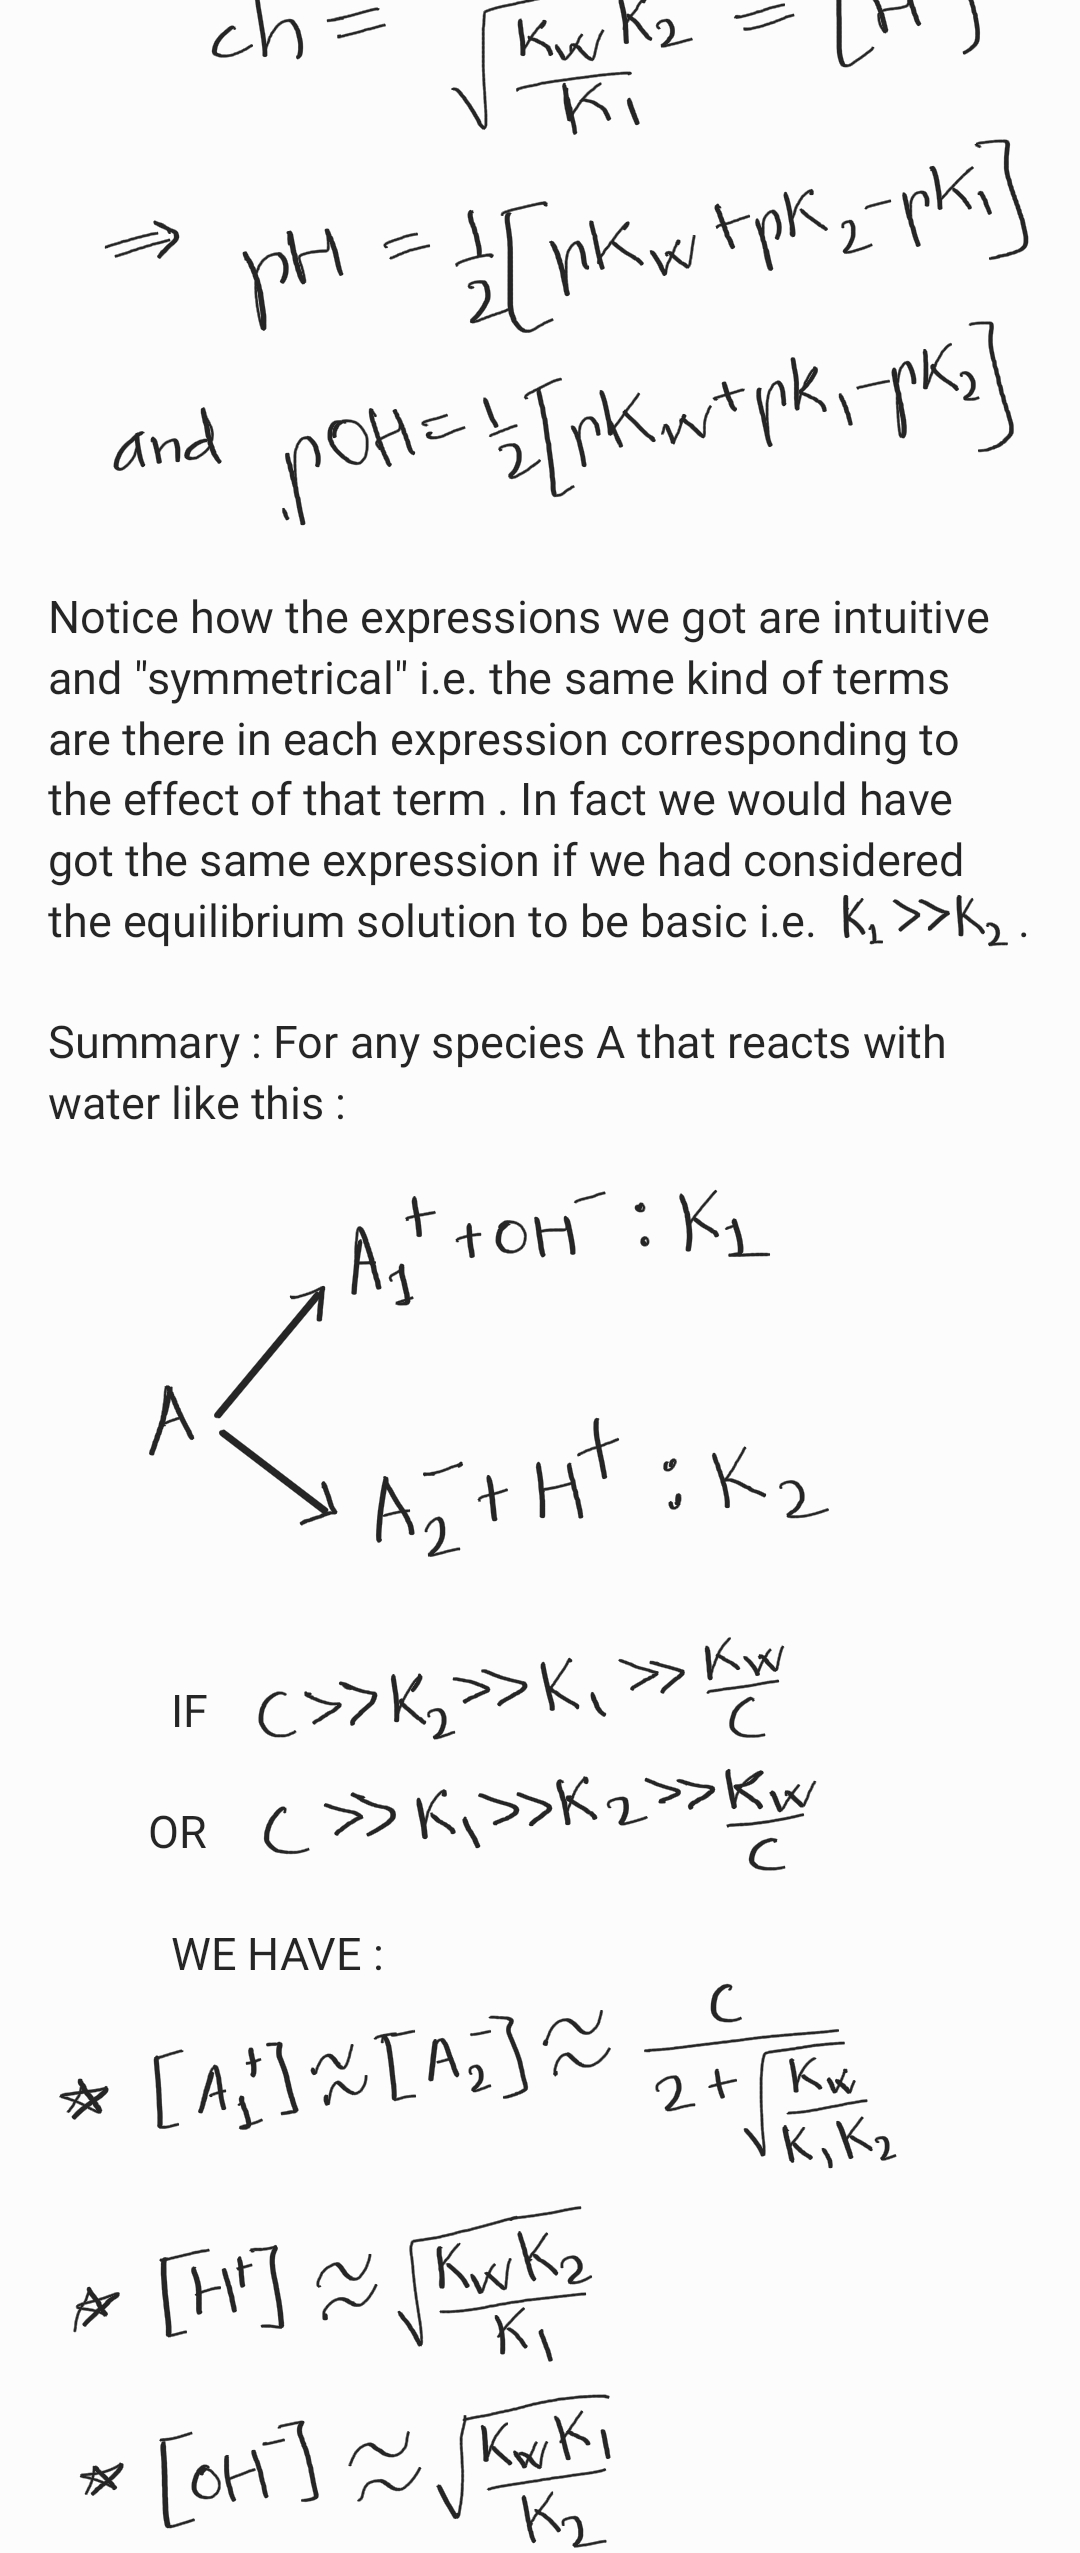 ch = √(KwK₂/K₁) = [H⁺]
⇒ pH = 1/2[pKw + pK₂ - pK₁]
and pOH = 1/2[pKw + pK₁ - pK₂]
Notice how the expressions we got are intuitive
and "symmetrical" i.e. the same kind of terms
are there in each expression corresponding to
the effect of that term . In fact we would have
got the same expression if we had considered
the equilibrium solution to be basic i.e. K₁ >> K₂ .
Summary : For any species A that reacts with
water like this :
A₁⁺ + OH⁻ : K₁
A
A₂⁻ + H⁺ : K₂
IF C >> K₂ >> K₁ >> Kw/C
OR C >> K₁ >> K₂ >> Kw/C
WE HAVE :
☆ [A₁⁺] ≈ [A₂⁻] ≈ C/(2 + √(Kw/K₁K₂))
☆ [H⁺] ≈ √(KwK₂/K₁)
☆ [OH⁻] ≈ √(KwK₁/K₂)